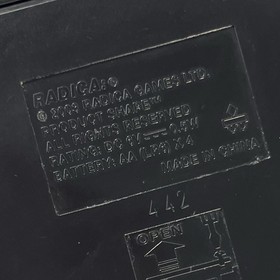 RADICA:®
© 2003 RADICA GAMES LTD.
PRODUCT SHAPE™
ALL RIGHTS RESERVED
RATING: DC 6V
BATTERY: AA (LR6) X 4
MADE IN CHINA
442
OPEN